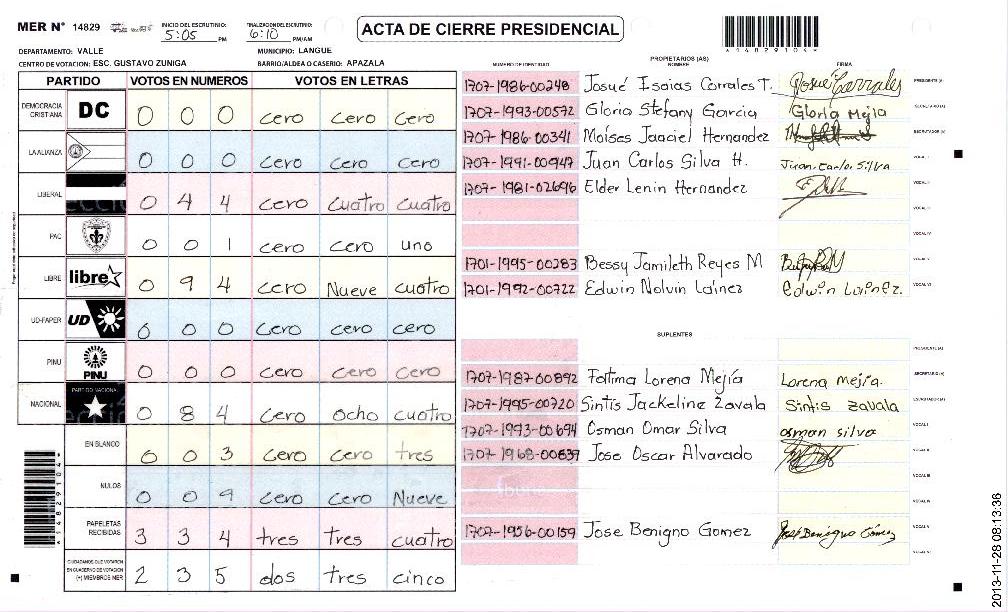 MER N° 14829
INICIO DEL ESCRUTINIO: 5:05 PM
FINALIZACION DEL ESCRUTINIO: 6:10 PM/AM
ACTA DE CIERRE PRESIDENCIAL
*14829104*
DEPARTAMENTO: VALLE MUNICIPIO: LANGUE
CENTRO DE VOTACION: ESC. GUSTAVO ZUNIGA BARRIO/ALDEA O CASERIO: APAZALA
PARTIDO VOTOS EN NUMEROS VOTOS EN LETRAS
DEMOCRACIA CRISTIANA DC 0 0 0 cero cero cero
LA ALIANZA 0 0 0 cero cero cero
LIBERAL 0 4 4 cero cuatro cuatro
PAC 0 0 1 cero cero uno
LIBRE libre 0 9 4 cero Nueve cuatro
UD-FAPER UD 0 0 0 cero cero cero
PINU PINU 0 0 0 cero cero cero
NACIONAL PARTIDO NACIONAL 0 8 4 cero ocho cuatro
EN BLANCO 0 0 3 cero cero tres
NULOS 0 0 9 cero cero Nueve
PAPELETAS RECIBIDAS 3 3 4 tres tres cuatro
CIUDADANOS QUE VOTARON EN CUADERNO DE VOTACION (+) MIEMBROS MER 2 3 5 dos tres cinco
*14829104*
PROPIETARIOS (AS)
NUMERO DE IDENTIDAD NOMBRE FIRMA
1707-1986-00248 Josué Isaias Corrales T. Josue Corrales PRESIDENTE (A)
1707-1993-00572 Gloria Stefany Garcia Gloria Mejia SECRETARIO (A)
1707-1986-00341 Moises Jaaciel Hernandez ESCRUTADOR (A)
1707-1991-00947 Juan Carlos Silva H. Juan Carlos Silva VOCAL I
1707-1981-02696 Elder Lenin Hernandez VOCAL II
VOCAL III
VOCAL IV
1701-1995-00283 Bessy Jamileth Reyes M VOCAL V
1701-1992-00722 Edwin Nolvin Laínez Edwin Lainez. VOCAL VI
SUPLENTES
PRESIDENTE (A)
1707-1987-00892 Fatima Lorena Mejía Lorena mejia. SECRETARIO (A)
1707-1995-00720 Sintis Jackeline Zavala Sintis zavala ESCRUTADOR (A)
1707-1993-00694 Osman Omar Silva osman silva VOCAL I
1707-1968-00837 Jose Oscar Alvarado VOCAL II
VOCAL III
VOCAL IV
1707-1956-00159 Jose Benigno Gomez José Benigno Gómez VOCAL V
VOCAL VI
2013-11-28 08:13:36